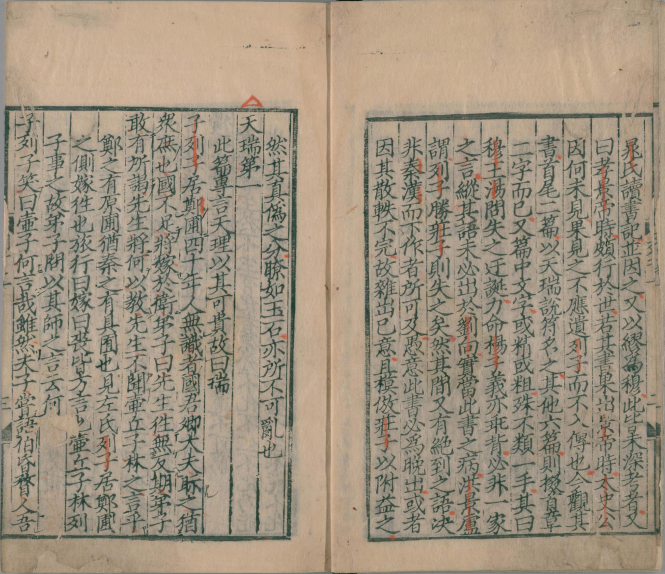 晁氏讀書記並因之又以繆為穆此皆未深考者又
曰孝景帝時頗行於世若其書果出景帝時太史公
因何未見果見之不應遺列子而不入傳也今觀其
書首尾二篇以天瑞說符名之其他六篇則掇首章
二字而已又篇中文字或精或粗殊不類一手其曰
穆王湯問失之迂誕力命楊子義亦乖背必非一家
之言縱其語未必出於劉向實當此書之病洪景盧
謂列子勝莊子則失之矣然其間又有絕到之語決
非秦漢而下作者所可及愚意此書必為晚出或者
因其散軼不完故雜出己意且模倣莊子以附益之
然其真偽之分瞭如玉石亦所不可亂也
天瑞第一
此篇專言天理以其可貴故曰瑞
子列子居鄭圃四十年人無識者國君卿大夫眎之猶
眾庶也國不足將嫁於衛弟子曰先生往無反期弟子
敢有所謁先生將何以教先生不聞壺丘子林之言乎
鄭之有原圃猶秦之有具囿也見左氏列子居鄭圃
之側嫁往也旅行曰嫁曰
方言也壺丘子林列
子事之故弟子問以其師之言云何
子列子笑曰壺子何言哉雖然夫子嘗語伯昏瞀人吾